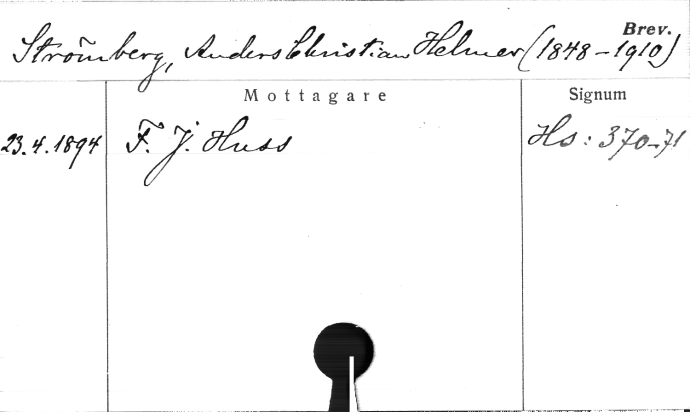 Brev.
Strömberg, Anders Christian Helmer (1848-1910)
Mottagare Signum
23.4.1894 F. J. Huss Hs: 370-71